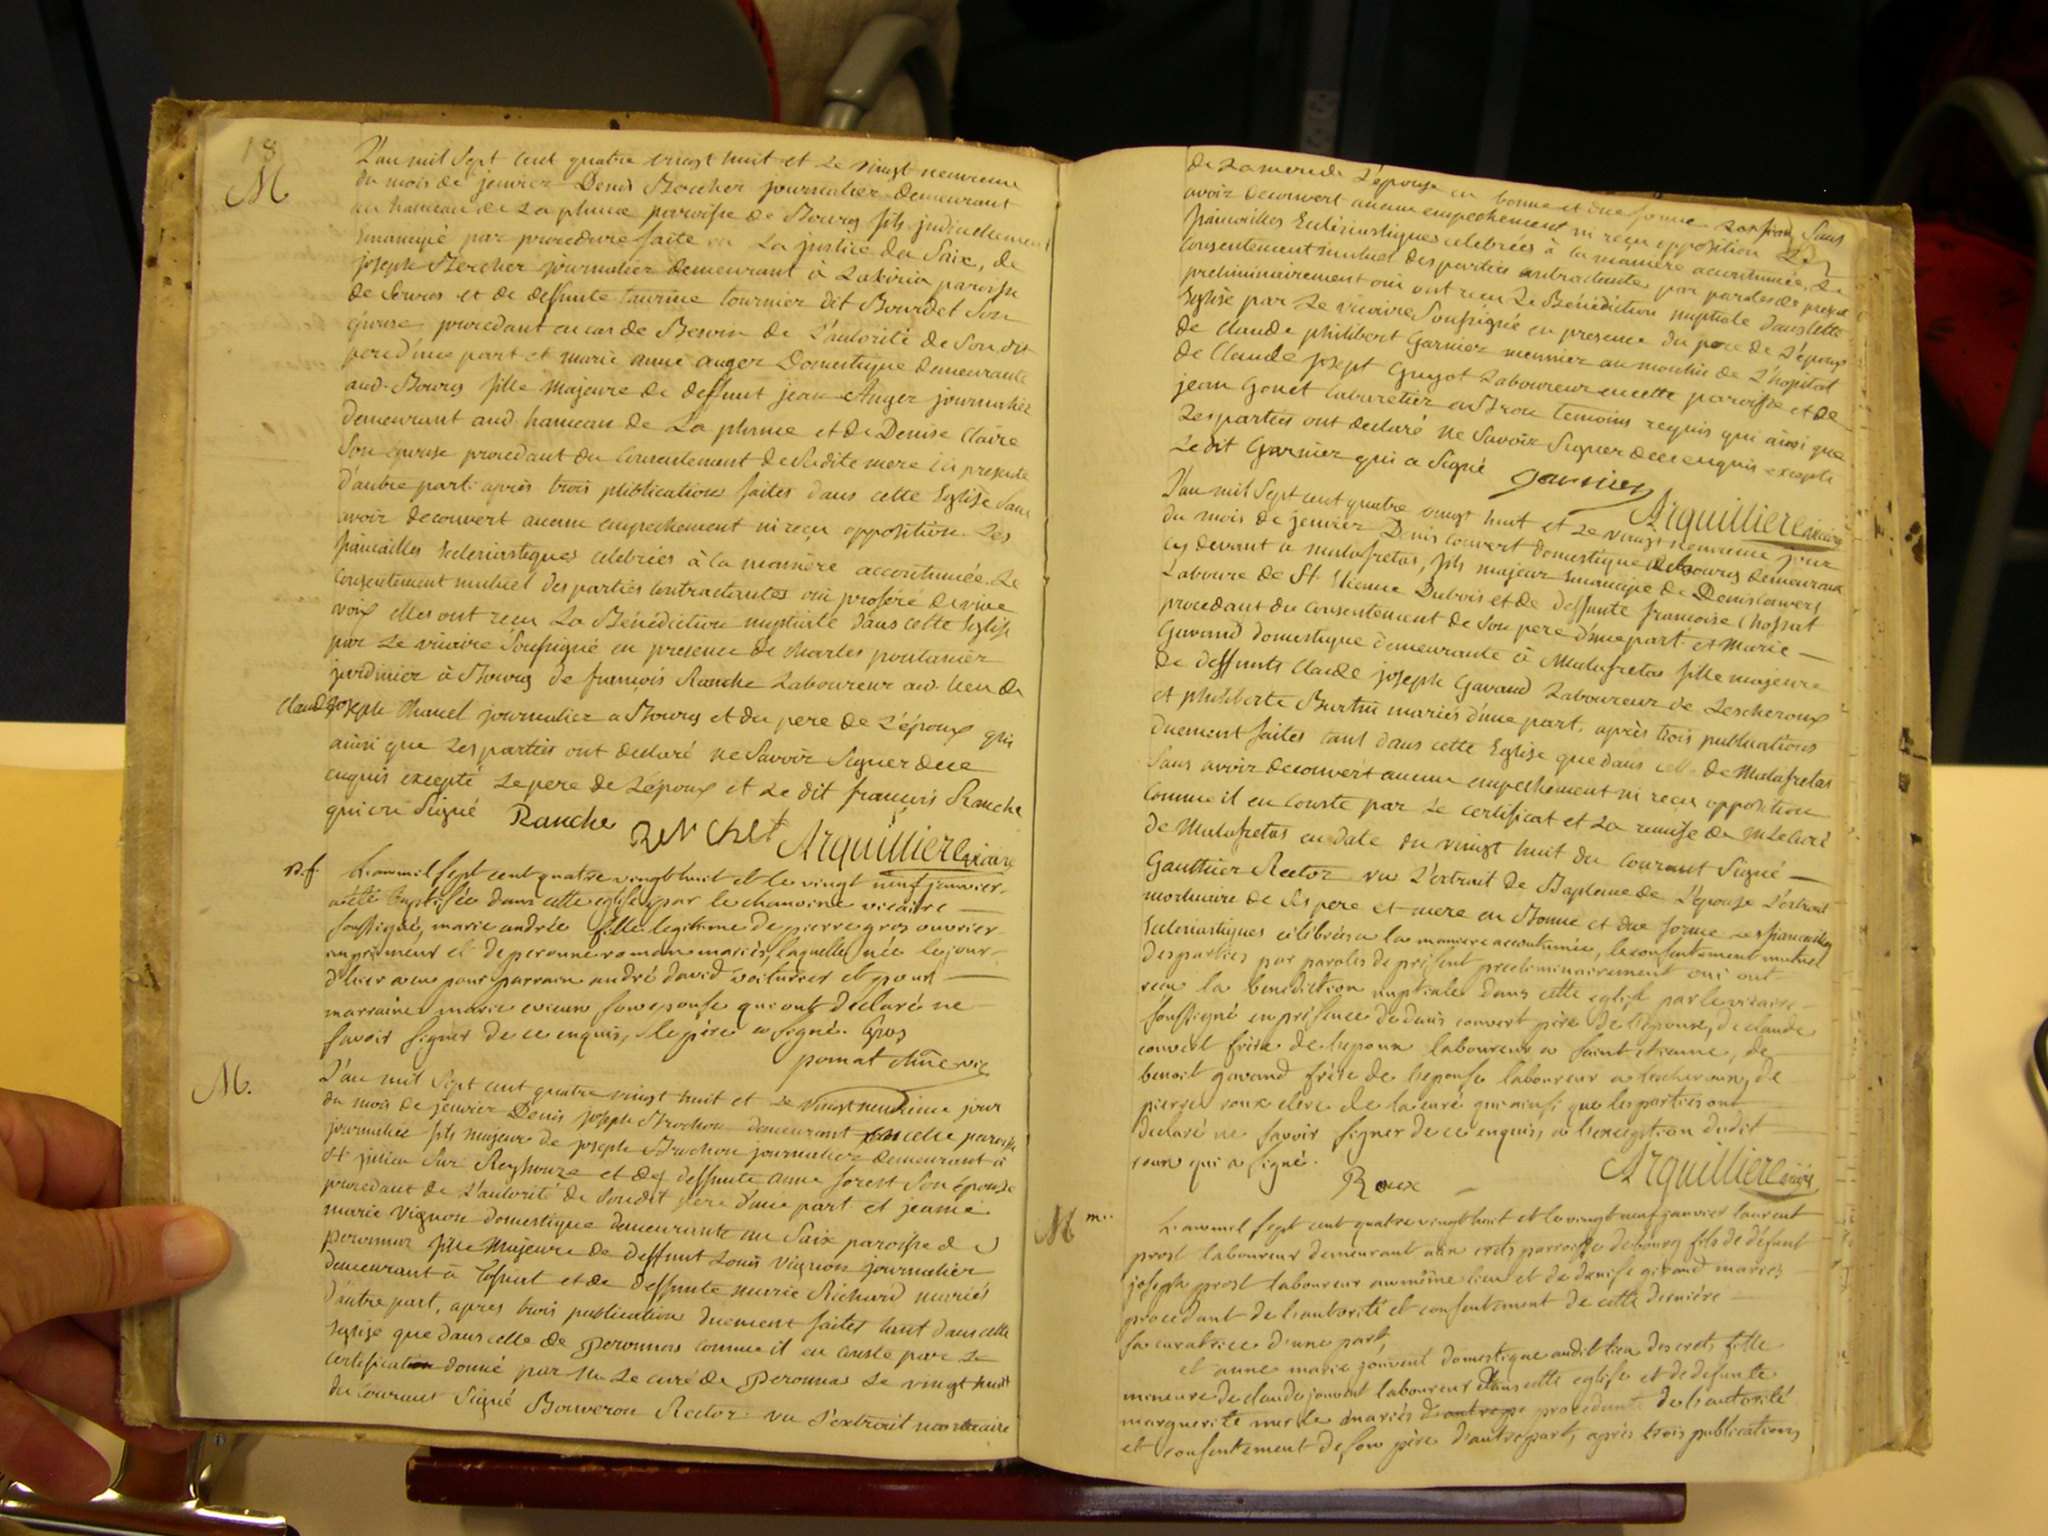 18
M
L'an mil Sept cent quatre vingt huit et Le vingt neuvieme
du mois de jenvier Denis Bercher journalier demeurant
au hameau de La plume paroisse de Bourg fils judiciellement
emancipé par procedure faite en La justice du Saix, de
joseph Bercher journalier demeurant à paroisse
de et de deffunte tournier dit Bourdet Son
epouse procedant en cas de Besoin de L'autorité de Son dit
pere d'une part et marie anne auger Domestique demeurante
aud. Bourg fille Majeure de deffunt jean Auger journalier
demeurant aud. hameau de La plume et de Denise Claire
Son epouse procedant du Consentement de Sadite mere ici presente
d'autre part. après trois publications faites dans cette Eglise Sans
avoir decouvert aucun empechement ni reçu opposition. Les
fiancailles Eclesiastiques celebrées à la manière accoutumée. Le
Consentement mutuel des parties Contractantes oui proféré de vive
voix elles ont reçu La Bénédiction nuptiale dans cette Eglise
par Le vicaire Soussigné en presence de charles pontanier
jardinier à Bourg de françois Ranche Laboureur aud. lieu de
Claude joseph journalier a Bourg et du pere de L'époux qui
ainsi que Les parties ont declaré ne Savoir Signer de ce
enquis excepté Le pere de L'époux et Le dit françois Ranche
qui on Signé Ranche
Arquilliere vicaire
B.f. L'an mil sept cent quatre vingt huit et le vingt neuf janvier
a été baptisée dans cette eglise par le chanoine vicaire
soussigné, marie andrée fille legitime de pierre gros ouvrier
imprimeur et de peronne roman mariés, laquelle née le jour
d'hier a eu pour parrain andré david voiturier et pour
marraine marie son epouse qui ont declaré ne
savoir signer de ce enquis, le père a signé. Gros
pomat chne vic
M. L'an mil Sept cent quatre vingt huit et Le vingt neuvieme jour
du mois de jenvier Denis joseph Brochon demeurant en cette paroisse
journalier fils majeur de joseph Brochon journalier demeurant à
St julien Sur Reyssouze et de deffunte anne forest Son épouse
procedant de L'autorité de Son dit père d'une part et jeanne
marie vignon domestique demeurante au Saix paroisse de
peronnas fille Majeure de deffunt Louis vignon journalier
demeurant à et de deffunte marie Richard mariés
d'autre part, apres trois publications duement faites tant dans cette
Eglise que dans celle de Peronnas comme il en conste par Le
certificat donné par Mr Le curé de Peronnas Le vingt huit
du Courant Signé Bouveron Rector. vu L'extrait mortuaire
de La mere de L'épouse en bonne et due forme Sans
avoir decouvert aucun empechement ni reçu opposition Les
fiancailles Eclésiastiques celebrées à la manière accoutumée, Le
Consentement mutuel des parties contractantes par paroles de present
preliminairement oui ont reçu La Bénédiction nuptiale dans cette
Eglise par Le vicaire Soussigné en presence du pere de L'époux
de Claude philibert Garnier meunier au moulin de L'hopital
de Claude josept Guyot Laboureur en cette paroisse et de
jean Gonet cabaretier a Brou temoins requis qui ainsi que
Les parties ont declaré ne Savoir Signer de ce enquis excepté
Le dit Garnier qui a Signé garnier
Arquilliere vicaire
L'an mil Sept cent quatre vingt huit et Le vingt neuvieme jour
du mois de jenvier Denis Couvert domestique à Bourg demeurant
cy devant a malafretas, fils majeur Emancipé de Denis Couvert
Laboure de St. Etienne Dubois et de deffunte francoise Chossat
procedant du Consentement de Son pere d'une part et Marie
Gavand domestique demeurante à Malafretas fille majeure
de deffunts Claude joseph Gavand Laboureur de Lescheroux
et philiberte mariés d'une part, après trois publications
duement faites tant dans cette Eglise que dans celle de Malafretas
Sans avoir decouvert aucun empechement ni reçu opposition
Comme il en Conste par Le certificat et La remise de Mr Le Curé
de Malafretas en date du vingt huit du Courant Signé
Gauthier Rector vu L'extrait de Bapteme de L'épouse L'extrait
mortuaire de Ses pere et mere en Bonne et due forme Les fiancailles
Eclesiastiques célébrées a la maniere accoutumée, le consentement mutuel
des parties par paroles de présent preliminairement oui ont
recu la benediction nuptiale dans cette eglise par le vicaire
soussigné en présence de denis couvert père de l'epoux, de claude
couvert frère de l'epoux laboureur a saint etienne, de
benoit gavand frère de l'epouse laboureur a lecheroux, de
pierre roux clerc de la cure qui ainsi que les parties ont
declaré ne savoir signer de ce enquis, a l'exception dudit
roux qui a signé.
Roux
Arquilliere vicaire
M m.. L'an mil sept cent quatre vingt huit et le vingt neuf janvier laurent
prost laboureur demeurant aux crets parroisse de bourg fils de défunt
joseph prost laboureur au même lieu et de denise girand mariés
procedant de l'autorité et consentement de cette dernière
sa curatrice d'une part,
et anne marie jouvent domestique audit lieu des crets fille
mineure de claude jouvent laboureur dans cette eglise et de defunte
marguerite mariés procedante de l'autorité
et consentement de son père d'autre part, après trois publications